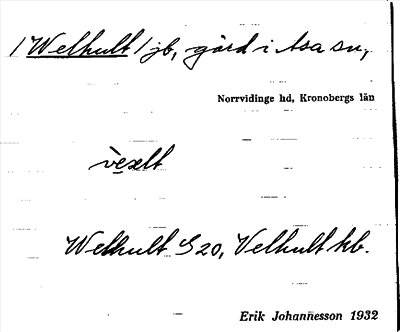 / Welhult / jb, gård i Asa sn,
Norrvidinge hd, Kronobergs län
vèxlt
Welhult G 20, Velhult kb.
Erik Johannesson 1932